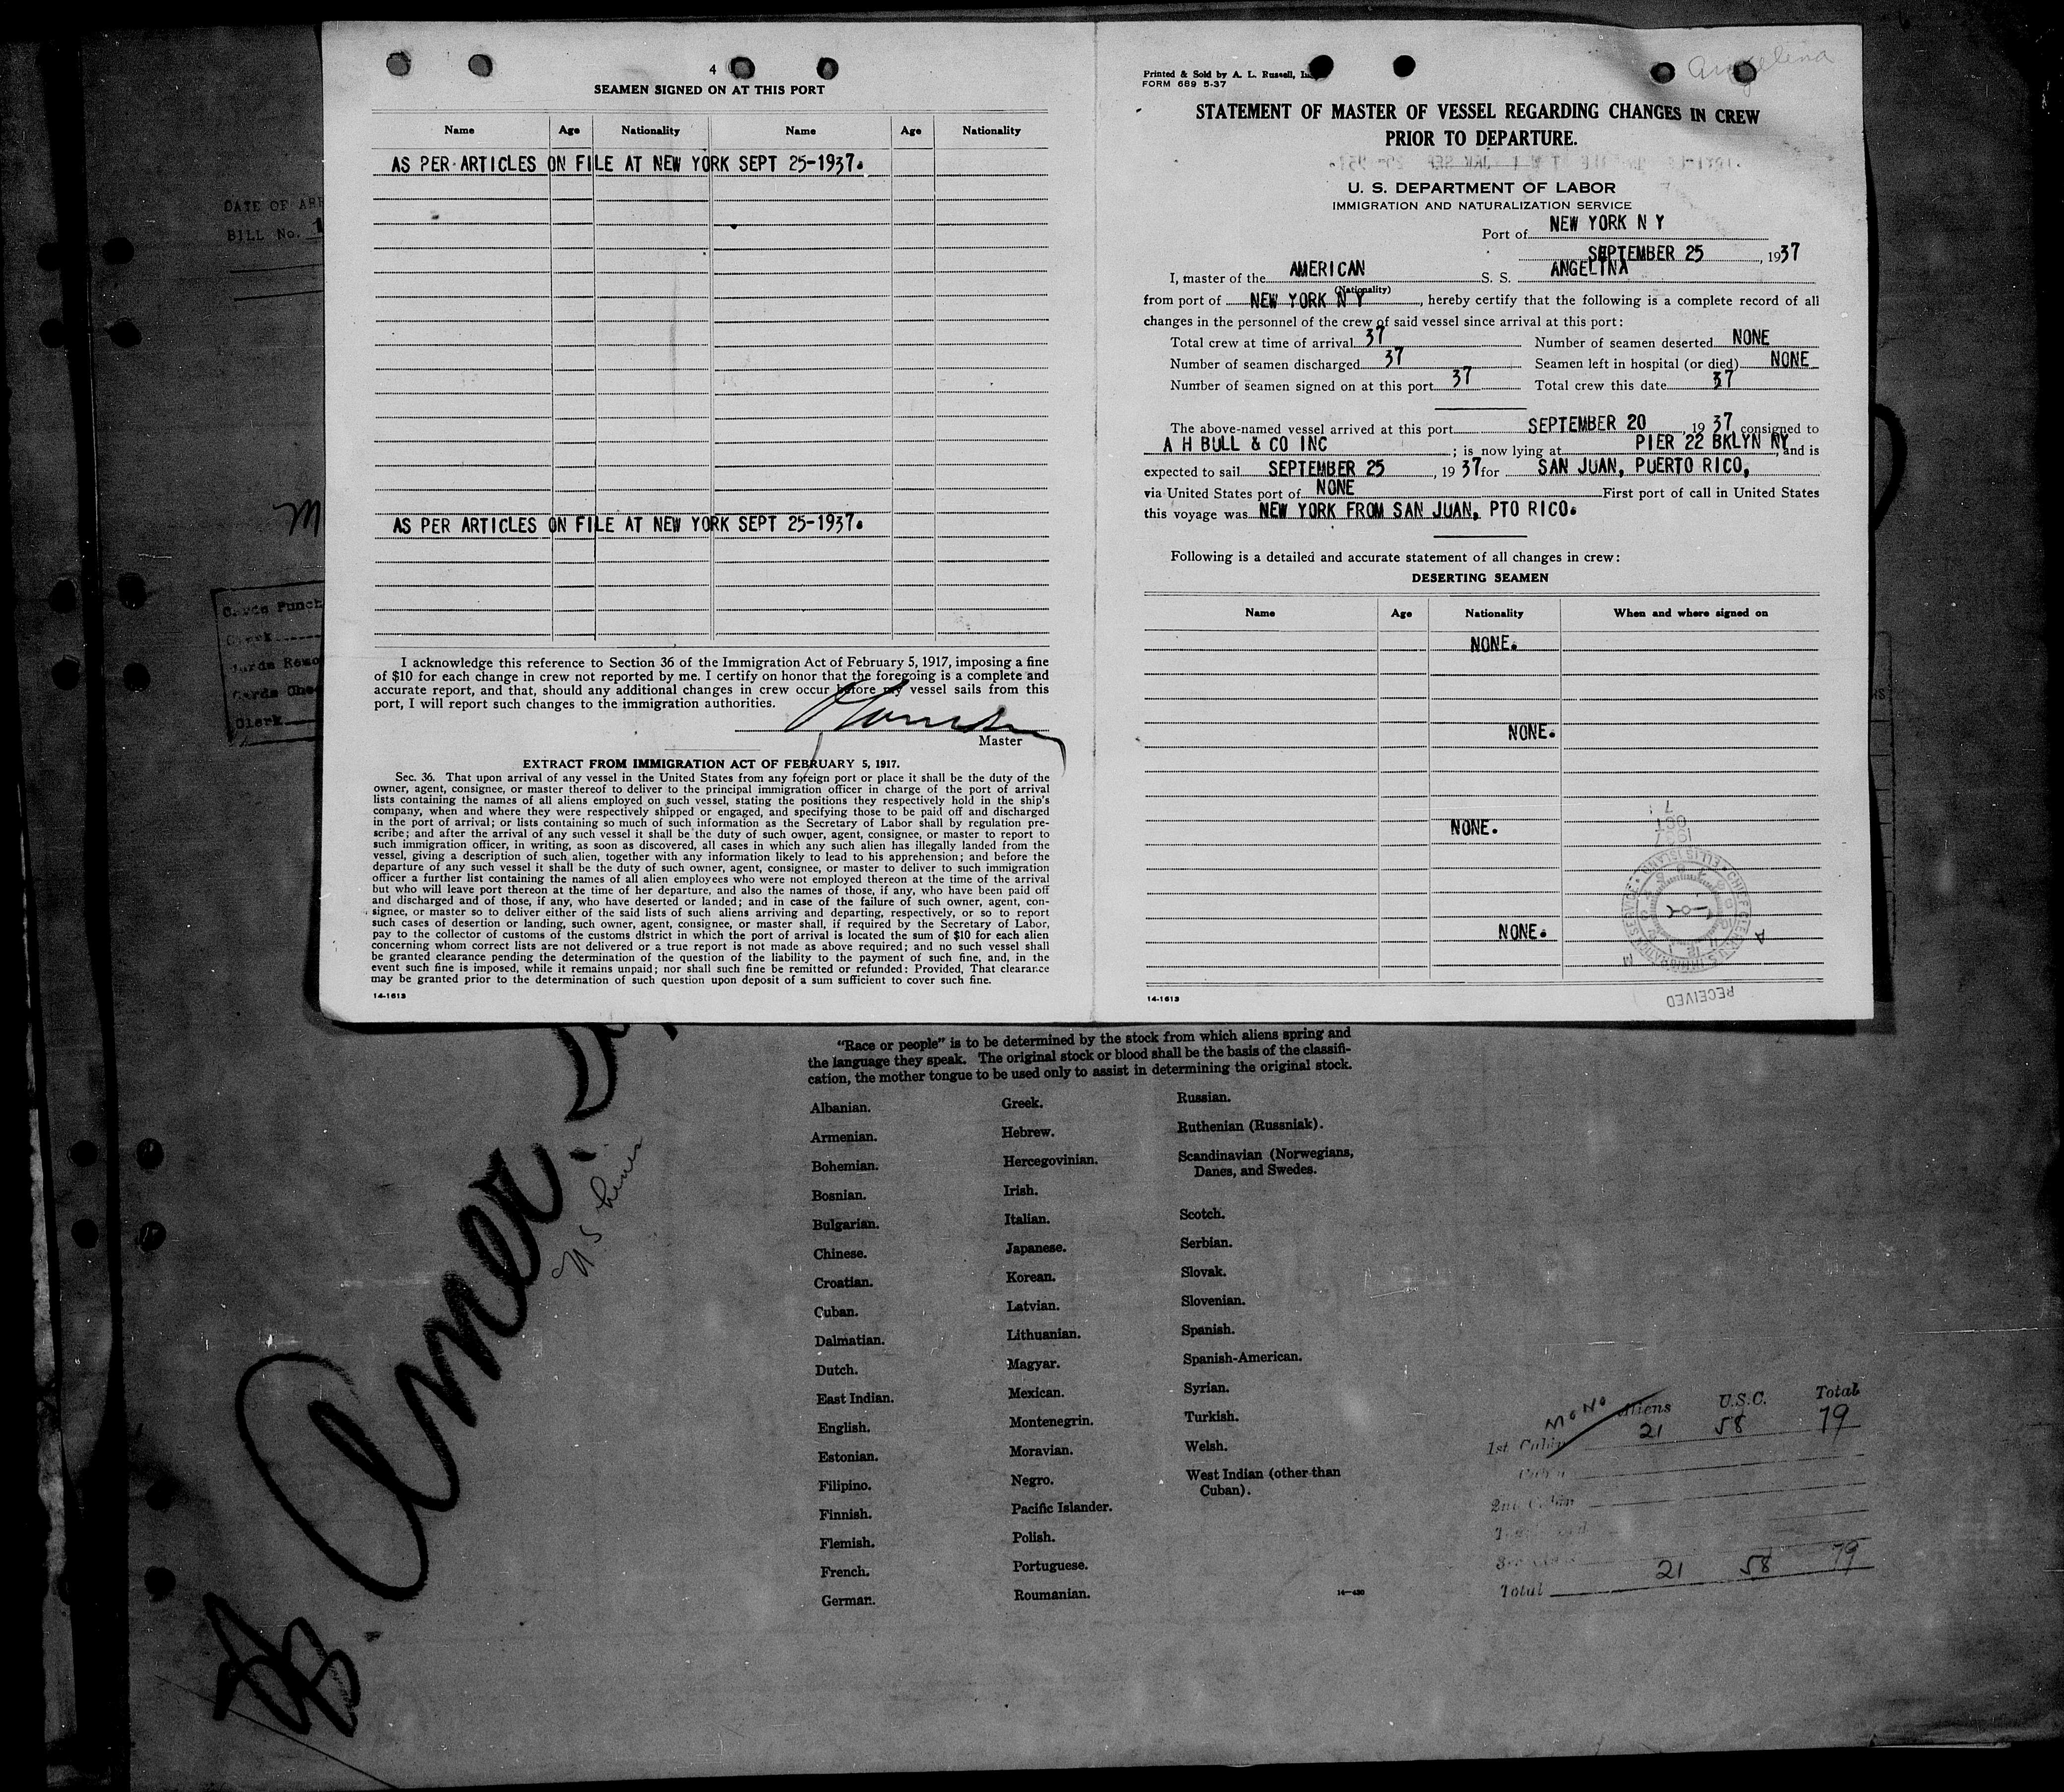 4
SEAMEN SIGNED ON AT THIS PORT
Name Age Nationality Name Age Nationality
AS PER ARTICLES ON FILE AT NEW YORK SEPT 25-1937.
AS PER ARTICLES ON FILE AT NEW YORK SEPT 25-1937.
I acknowledge this reference to Section 36 of the Immigration Act of February 5, 1917, imposing a fine
of $10 for each change in crew not reported by me. I certify on honor that the foregoing is a complete and
accurate report, and that, should any additional changes in crew occur before my vessel sails from this
port, I will report such changes to the immigration authorities.
Master
EXTRACT FROM IMMIGRATION ACT OF FEBRUARY 5, 1917.
Sec. 36. That upon arrival of any vessel in the United States from any foreign port or place it shall be the duty of the
owner, agent, consignee, or master thereof to deliver to the principal immigration officer in charge of the port of arrival
lists containing the names of all aliens employed on such vessel, stating the positions they respectively hold in the ship's
company, when and where they were respectively shipped or engaged, and specifying those to be paid off and discharged
in the port of arrival; or lists containing so much of such information as the Secretary of Labor shall by regulation pre-
scribe; and after the arrival of any such vessel it shall be the duty of such owner, agent, consignee, or master to report to
such immigration officer, in writing, as soon as discovered, all cases in which any such alien has illegally landed from the
vessel, giving a description of such alien, together with any information likely to lead to his apprehension; and before the
departure of any such vessel it shall be the duty of such owner, agent, consignee, or master to deliver to such immigration
officer a further list containing the names of all alien employees who were not employed thereon at the time of the arrival
but who will leave port thereon at the time of her departure, and also the names of those, if any, who have been paid off
and discharged and of those, if any, who have deserted or landed; and in case of the failure of such owner, agent, con-
signee, or master so to deliver either of the said lists of such aliens arriving and departing, respectively, or so to report
such cases of desertion or landing, such owner, agent, consignee, or master shall, if required by the Secretary of Labor,
pay to the collector of customs of the customs district in which the port of arrival is located the sum of $10 for each alien
concerning whom correct lists are not delivered or a true report is not made as above required; and no such vessel shall
be granted clearance pending the determination of the question of the liability to the payment of such fine, and, in the
event such fine is imposed, while it remains unpaid; nor shall such fine be remitted or refunded: Provided, That clearance
may be granted prior to the determination of such question upon deposit of a sum sufficient to cover such fine.
14-1613
Angelina
Printed & Sold by A. L. Russell,
FORM 689 5-37
STATEMENT OF MASTER OF VESSEL REGARDING CHANGES IN CREW
PRIOR TO DEPARTURE.
U. S. DEPARTMENT OF LABOR
IMMIGRATION AND NATURALIZATION SERVICE
Port of NEW YORK N Y
SEPTEMBER 25, 1937
I, master of the AMERICAN S. S. ANGELINA
(Nationality)
from port of NEW YORK N Y, hereby certify that the following is a complete record of all
changes in the personnel of the crew of said vessel since arrival at this port:
Total crew at time of arrival 37 Number of seamen deserted NONE
Number of seamen discharged 37 Seamen left in hospital (or died) NONE
Number of seamen signed on at this port 37 Total crew this date 37
The above-named vessel arrived at this port SEPTEMBER 20, 1937 consigned to
A H BULL & CO INC; is now lying at PIER 22 BKLYN NY, and is
expected to sail SEPTEMBER 25, 1937 for SAN JUAN, PUERTO RICO,
via United States port of NONE First port of call in United States
this voyage was NEW YORK FROM SAN JUAN, PTO RICO.
Following is a detailed and accurate statement of all changes in crew:
DESERTING SEAMEN
Name Age Nationality When and where signed on
NONE.
NONE.
NONE.
NONE.
RECEIVED
14-1613
DATE OF ARR
BILL No. 1
Cards Punch
Clerk
Cards Che
Clerk
Amer.
"Race or people" is to be determined by the stock from which aliens spring and
the language they speak. The original stock or blood shall be the basis of the classifi-
cation, the mother tongue to be used only to assist in determining the original stock.
Albanian. Greek. Russian.
Armenian. Hebrew. Ruthenian (Russniak).
Bohemian. Hercegovinian. Scandinavian (Norwegians,
Danes, and Swedes.
Bosnian. Irish.
Bulgarian. Italian. Scotch.
Chinese. Japanese. Serbian.
Croatian. Korean. Slovak.
Cuban. Latvian. Slovenian.
Dalmatian. Lithuanian. Spanish.
Dutch. Magyar. Spanish-American.
East Indian. Mexican. Syrian.
English. Montenegrin. Turkish.
Estonian. Moravian. Welsh.
Filipino. Negro. West Indian (other than
Cuban).
Finnish. Pacific Islander.
Flemish. Polish.
French. Portuguese.
German. Roumanian.
14-430
Aliens U.S.C. Total
1st Cabin 21 58 79
2nd Cabin
Total 21 58 79